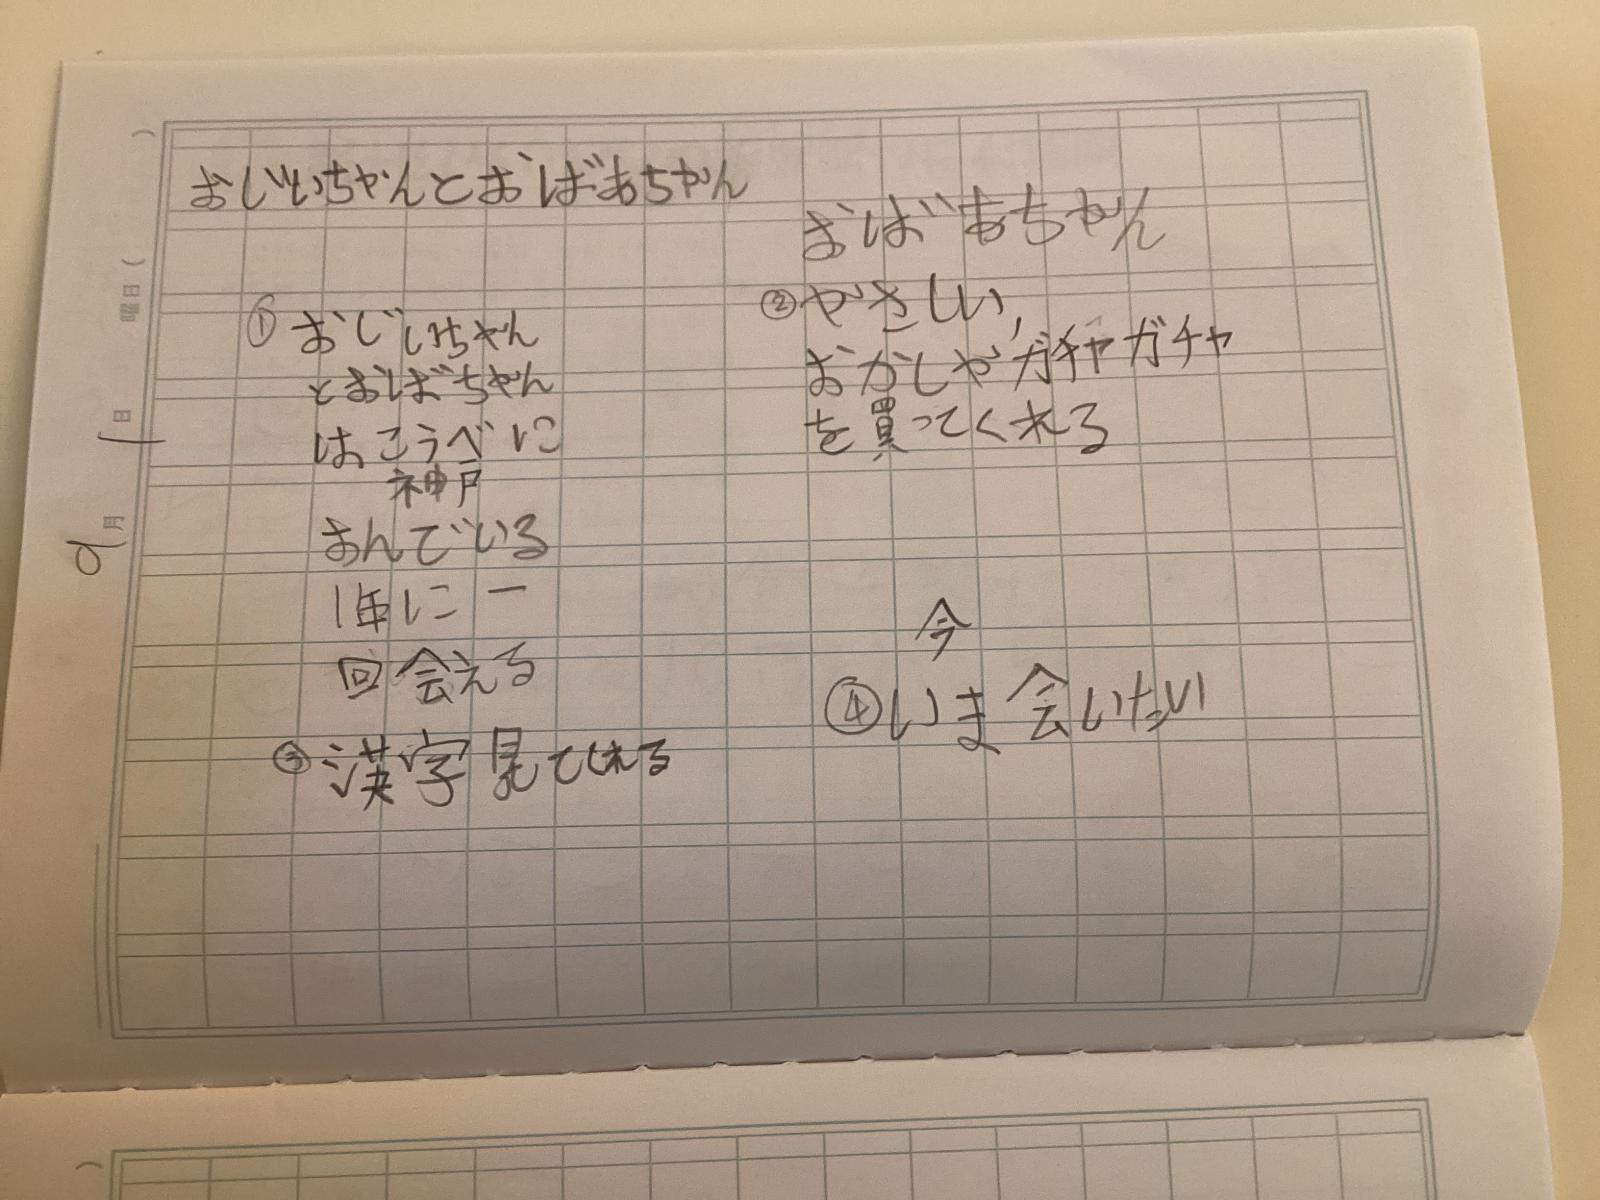 おじいちゃんとおばあちゃん
① おじいちゃん
とおばちゃん
は、こうべに
神戸
おんでいる
1年に一
回会える
③ 漢字見てくれる
おばあちゃん
②やさしい、
おかしやガチャガチャ
を買ってくれる
今
④いま会いたい
曜日(
日
9月